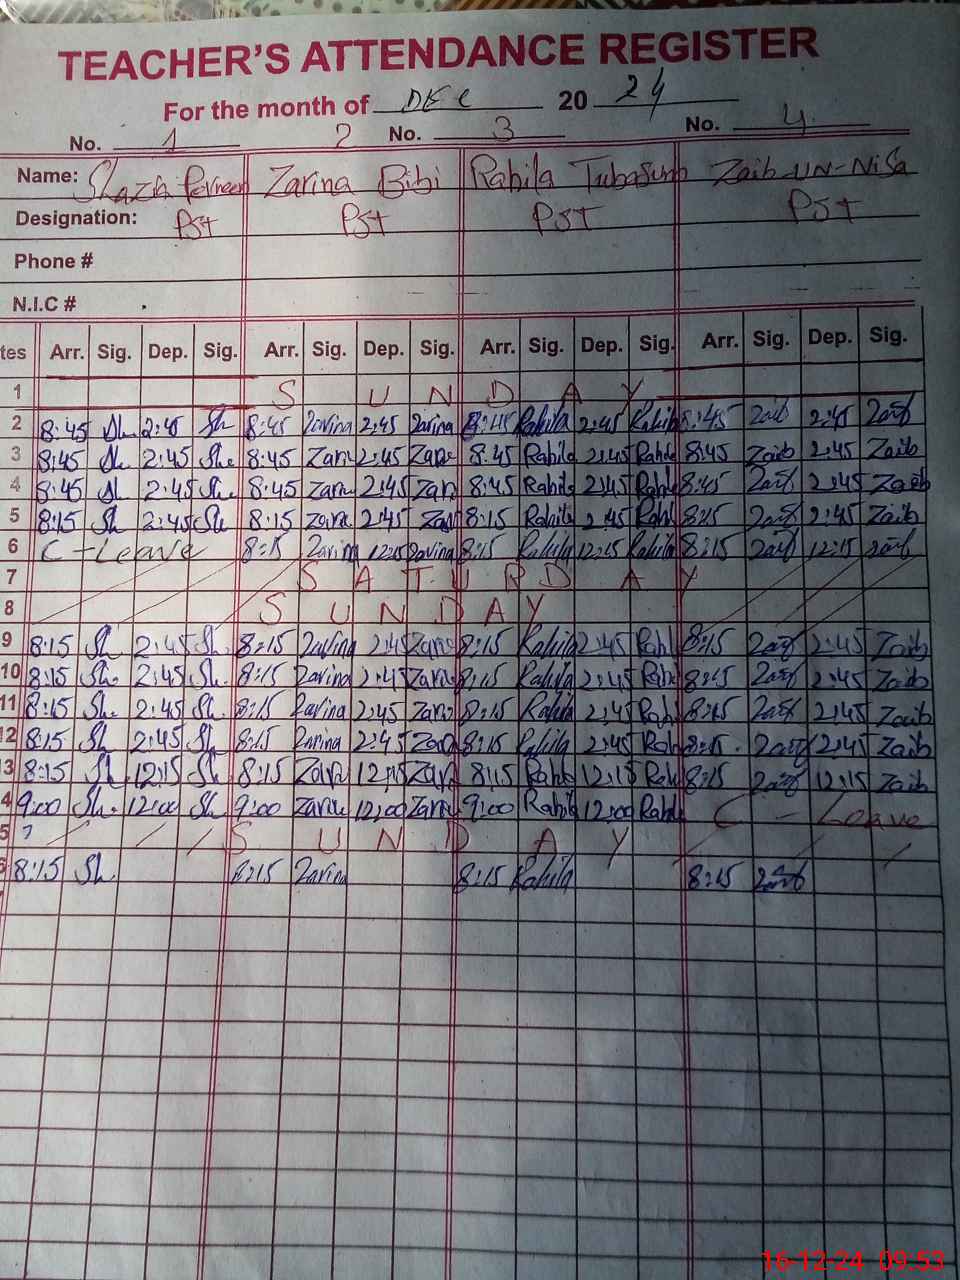 TEACHER'S ATTENDANCE REGISTER
For the month of Dec 20 24
No. 1 2 No. 3 No. 4
Name: Shazia Perveen Zarina Bibi Rahila Tubasum Zaib-UN-NiSa
Designation: PST PST PST PST
Phone #
N.I.C #
tes Arr. Sig. Dep. Sig. Arr. Sig. Dep. Sig. Arr. Sig. Dep. Sig. Arr. Sig. Dep. Sig.
1 S U N D A Y
2 8:45 Sh 2:45 Sh 8:45 Zarina 2:45 Zarina 8:45 Rahila 2:45 Rahila 8:45 Zaib 2:45 Zaib
3 8:45 Sh 2:45 She 8:45 Zarin 2:45 Zarin 8:45 Rahila 2:45 Rahila 8:45 Zaib 2:45 Zaib
4 8:45 Sh 2:45 She 8:45 Zarin 2:45 Zarin 8:45 Rahila 2:45 Rahila 8:45 Zaib 2:45 Zaib
5 8:15 Sh 2:45 She 8:15 Zarin 2:45 Zarin 8:15 Rahila 2:45 Rahil 8:15 Zaib 2:45 Zaib
6 C-Leave 8:15 Zarina 12:15 Zarina 8:15 Rahila 12:45 Rahila 8:15 Zaib 12:15 Zaib
7 S A T U R D A Y
8 S U N D A Y
9 8:15 Sh 2:45 Sh. 8:15 Zarina 2:45 Zarin 8:15 Rahila 2:45 Rahil 8:15 Zaib 2:45 Zaib
10 8:15 Sh. 2:45 Sh. 8:15 Zarina 2:45 Zarina 8:15 Rahila 2:45 Rahil 8:15 Zaib 2:45 Zaib
11 8:15 Sh. 2:45 Sh. 8:15 Zarina 2:45 Zarin 8:15 Rahila 2:45 Rahi 8:15 Zaib 2:45 Zaib
12 8:15 Sh 2:45 Sh 8:15 Zarina 2:45 Zarin 8:15 Rahila 2:45 Rah 8:15 Zaib 2:45 Zaib
13 8:15 Sh 12:15 Sh 8:15 Zarin 12:15 Zarin 8:15 Rahil 12:15 Rah 8:15 Zaib 12:15 Zaib
4 9:00 Sh. 12:00 Sh 9:00 Zarin 12:00 Zarin 9:00 Rahila 12:00 Rahila C - Leave
5 S U N D A Y
6 8:15 Sh 8:15 Zarina 8:15 Rahila 8:15 Zaib
16-12-24 09:53